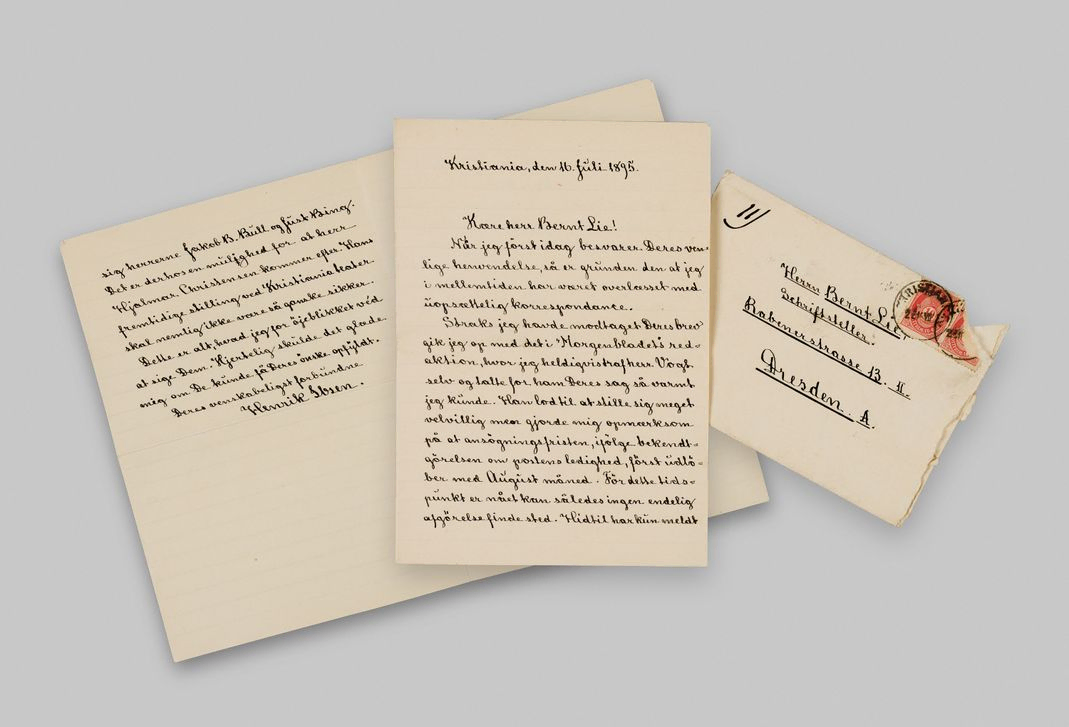 Kristiania, den 16. Juli 1895.
Kære herr Bernt Lie!
Når jeg först idag besvarer Deres ven-
lige henvendelse, så er grunden den at jeg
i mellemtiden har været overlæsset med
uopsættelig korrespondance.
Straks jeg havde modtaget Deres brev
gik jeg op med det i Morgenbladets red-
aktion, hvor jeg heldigvis traf herr Vogt
selv og talte for ham Deres sag så varmt
jeg kunde. Han lod til at stille sig meget
velvillig men gjorde mig opmærksom
på at ansögningsfristen, ifölge bekendt-
görelsen om postens ledighed, först udlö-
ber med August måned. För dette tids-
punkt er nået kan således ingen endelig
afgörelse finde sted. Hidtil har kun meldt
sig herrerne Jakob B. Bull og Just Bing.
Det er derhos en mulighed for at herr
Hjalmar Christensen kommer efter. Hans
fremtidige stilling ved Kristiania teater
skal nemlig ikke være så ganske sikker.
Dette er alt, hvad jeg for öjeblikket véd
at sige Dem. Hjertelig skulde det glæde
mig om De kunde få Deres önske opfyldt.
Deres venskabeligst forbundne
Henrik Ibsen.
Herrn Bernt Lie,
Schriftsteller.
Rabenerstrasse 13. II.
Dresden. A.
KRISTIANIA